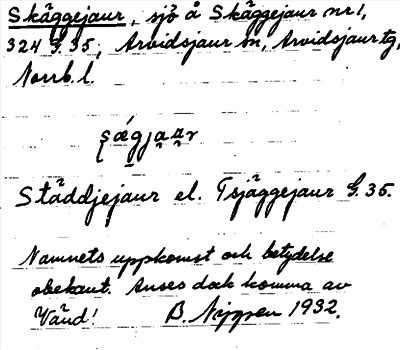 Skäggejaur, sjö å Skäggejaur nr 1,
324 G. 35, Arvidsjaur sn, Arvidsjaur tg,
Norrb. l.
Ståddjejaur el. Tsjäggejaur G. 35.
Namnets uppkomst och betydelse
obekant. Anses dock komma av
Vänd! B. Nygren 1932.